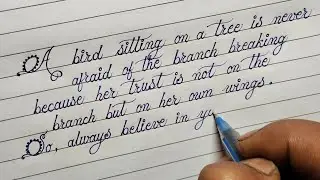 A bird sitting on a tree is never
afraid of the branch breaking
because her trust is not on the
branch but on her own wings.
So, always believe in yo